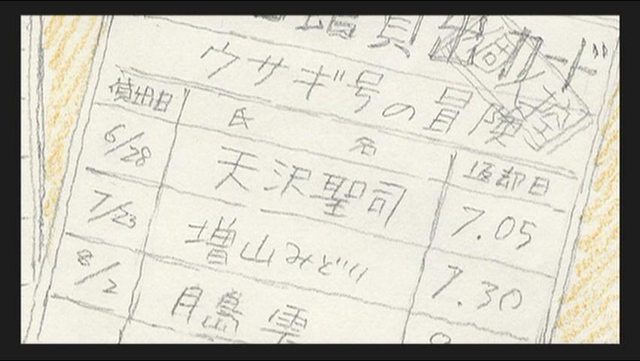 ウサギ号の冒険
貸出日 氏 名 返却日
6/28 天沢聖司 7.05
7/23 増山みどり 7.30
8/2 月島雫